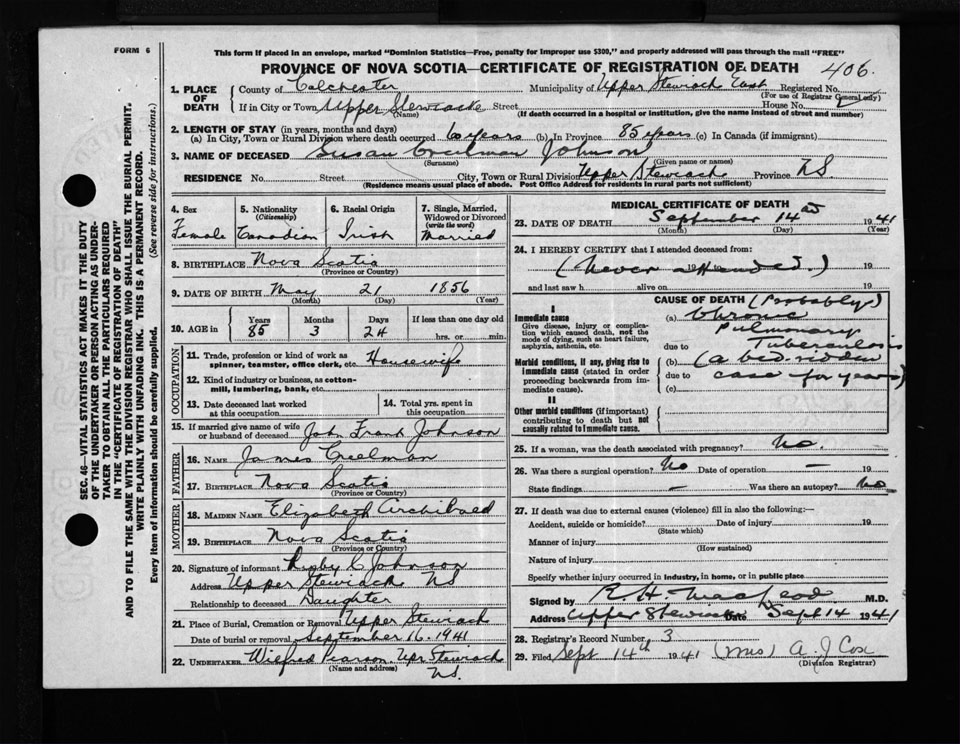 FORM 6
This form if placed in an envelope, marked "Dominion Statistics—Free, penalty for improper use $300," and properly addressed will pass through the mail "FREE"
PROVINCE OF NOVA SCOTIA—CERTIFICATE OF REGISTRATION OF DEATH
406.
SEC. 46—VITAL STATISTICS ACT MAKES IT THE DUTY
OF THE UNDERTAKER OR PERSON ACTING AS UNDER-
TAKER TO OBTAIN ALL THE PARTICULARS REQUIRED
IN THE "CERTIFICATE OF REGISTRATION OF DEATH"
AND TO FILE THE SAME WITH THE DIVISION REGISTRAR WHO SHALL ISSUE THE BURIAL PERMIT.
WRITE PLAINLY WITH UNFADING INK. THIS IS A PERMANENT RECORD.
Every item of information should be carefully supplied. (See reverse side for instructions.)
1. PLACE OF DEATH
County of Colchester Municipality of Upper Stewiack East Registered No.
(For use of Registrar General only)
If in City or Town Upper Stewiacke Street House No.
(Name) (If death occurred in a hospital or institution, give the name instead of street and number)
2. LENGTH OF STAY (in years, months and days)
(a) In City, Town or Rural Division where death occurred 60 years (b) In Province 85 years (c) In Canada (if immigrant)
3. NAME OF DECEASED Susan Creelman Johnson
(Surname) (Given name or names)
RESIDENCE No. Street City, Town or Rural Division Upper Stewiack Province N.S.
(Residence means usual place of abode. Post Office Address for residents in rural parts not sufficient)
4. Sex
Female
5. Nationality
(Citizenship)
Canadian
6. Racial Origin
Irish
7. Single, Married,
Widowed or Divorced
(write the word)
Married
8. BIRTHPLACE Nova Scotia
(Province or Country)
9. DATE OF BIRTH May 21 1856
(Month) (Day) (Year)
10. AGE in
Years Months Days If less than one day old
85 3 24 hrs. or min.
OCCUPATION
11. Trade, profession or kind of work as
spinner, teamster, office clerk, etc. Housewife
12. Kind of industry or business, as cotton-
mill, lumbering, bank, etc.
13. Date deceased last worked
at this occupation
14. Total yrs. spent in
this occupation
15. If married give name of wife
or husband of deceased Joh Frank Johnson
FATHER
16. NAME James Creelman
17. BIRTHPLACE Nova Scotia
(Province or Country)
MOTHER
18. MAIDEN NAME Elizabeth Archibald
19. BIRTHPLACE Nova Scotia
(Province or Country)
20. Signature of informant C Johnson
Address Upper Stewiack NS
Relationship to deceased Daughter
21. Place of Burial, Cremation or Removal Upper Stewiack
Date of burial or removal September 16. 1941
22. UNDERTAKER Wilfred Pearson. Upr Stewiack
(Name and address) NS.
MEDICAL CERTIFICATE OF DEATH
23. DATE OF DEATH September 14 1941
(Month) (Day) (Year)
24. I HEREBY CERTIFY that I attended deceased from:
(Never attended.) 19 to 19
and last saw h alive on 19
CAUSE OF DEATH (Probably)
I
Immediate cause
Give disease, injury or complica-
tion which caused death, not the
mode of dying, such as heart failure,
asphyxia, asthenia, etc.
(a) Chronic
Pulmonary
due to Tuberculosis
Morbid conditions, if any, giving rise to
immediate cause (stated in order
proceeding backwards from im-
mediate cause).
(b) (a bed-ridden
due to case for years)
(c)
II
Other morbid conditions (if important)
contributing to death but not
causally related to immediate cause.
25. If a woman, was the death associated with pregnancy? No.
26. Was there a surgical operation? No Date of operation — 19
State findings — Was there an autopsy? No
27. If death was due to external causes (violence) fill in also the following:—
Accident, suicide or homicide? Date of injury 19
(State which)
Manner of injury
(How sustained)
Nature of injury
Specify whether injury occurred in industry, in home, or in public place
Signed by R. H. MacLeod M.D.
Address Upper Stewiack Date Sept 14 1941
28. Registrar's Record Number 3
29. Filed Sept 14th 1941 (Mrs) A. J Cox
(Division Registrar)